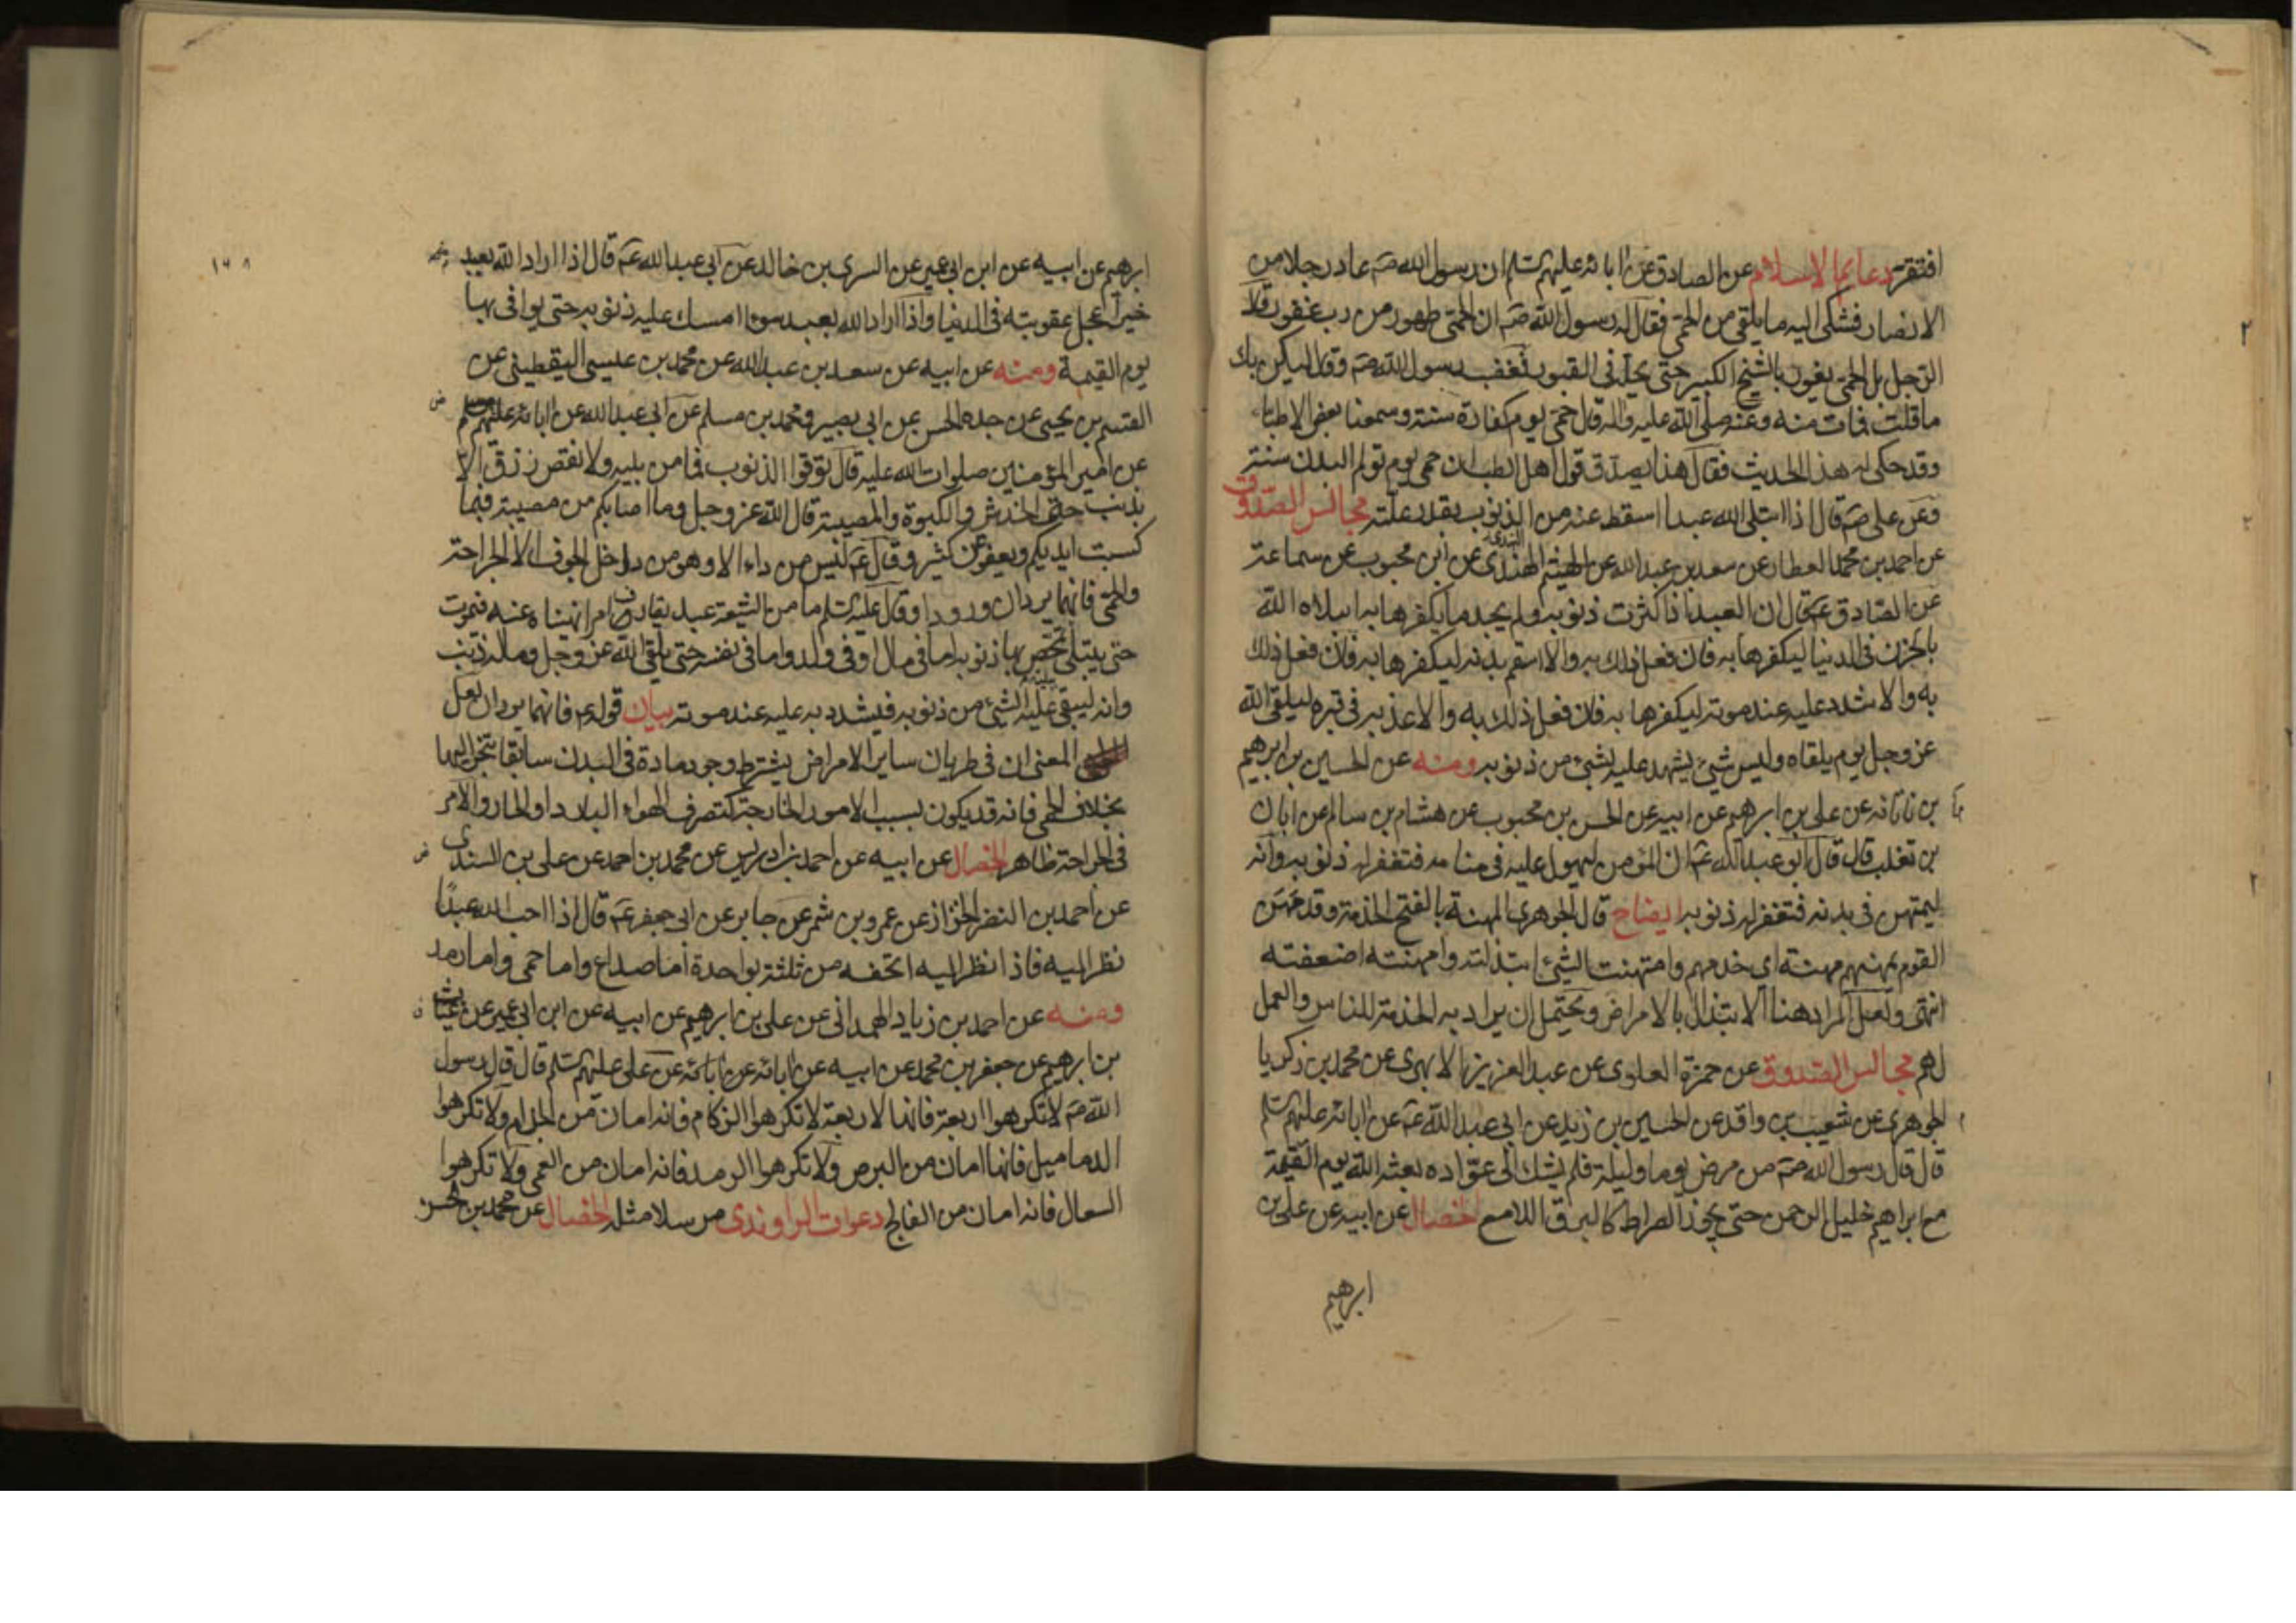 افتقرت دعايم الاسلام عن الصادق عن ابائه عليهم السلم ان رسول الله صم عاد رجلا من
الانصار فشكى اليه ما يلقى من الحمى فقال له رسول الله صم ان الحمى طهور من رب غفور قال
الرجل بل الحمى يفور بالشيخ الكبير حتى تحله في القبور فغضب رسول الله صم وقال ليكن بك
ما قلت فمات منه وعنه صلى الله عليه واله قال حمى يوم كفارة سنة وسمعنا بعض الاطباء
وقد حكى له هذا الحديث فقال هذا يصدق قول اهل الطب ان حمى يوم تولم البدن سنة
وعن على صم قال اذا ابتلى الله عبدا اسقط عنه من الذنوب بقدر علته مجالس الصدوق
عن احمد بن محمد العطار عن سعد بن عبد الله عن الهيثم الهندى عن ابن محبوب عن سماعة
عن الصادق عم قال ان العبد اذا كثرت ذنوبه ولم يجد ما يكفرها به ابتلاه الله
بالحزن في الدنيا ليكفرها به فان فعل ذلك به والا اسقم بدنه ليكفرها به فان فعل ذلك
به والا شدد عليه عند موته ليكفرها به فان فعل ذلك به والا عذبه في قبره ليلقى الله
عز وجل يوم يلقاه وليس شئ يشهد عليه بشئ من ذنوبه ومنه عن الحسين بن ابرهيم
بن ناتانه عن على بن ابرهيم عن ابيه عن الحسن بن محبوب عن هشام بن سالم عن ابان
بن تغلب قال قال ابو عبد الله عم ان المؤمن ليهول عليه في منامه فتغفر له ذنوبه وانه
ليمتهن في بدنه فتغفر له ذنوبه ايضاح قال الجوهري المهنة بالفتح الخدمة وقد مهن
القوم يمهنهم مهنة اى خدمهم وامتهنت الشئ ابتذلته وامهنته اضعفته
انتهى ولعل المراد هنا الابتذال بالامراض ويحتمل ان يراد به الخدمة للناس والعمل
لهم مجالس الصدوق عن حمزة العلوى عن عبد العزيز الابهرى عن محمد بن زكريا
الجوهرى عن شعيب بن واقد عن الحسين بن زيد عن ابى عبد الله عم عن ابائه عليهم السلم
قال قال رسول الله صم من مرض يوما وليلة فلم يشك الى عواده بعثه الله يوم القيمة
مع ابراهيم خليل الرحمن حتى يجوز الصراط كالبرق اللامع الخصال عن ابيه عن على بن
ابرهيم
١٦٨
ابرهيم عن ابيه عن ابن ابى عمير عن السرى بن خالد عن ابى عبد الله عم قال اذا اراد الله بعبد
خيرا عجل عقوبته في الدنيا واذا اراد الله بعبد سوءا امسك عليه ذنوبه حتى يوافى بها
يوم القيمة ومنه عن ابيه عن سعد بن عبد الله عن محمد بن عيسى اليقطينى عن
القسم بن يحيى عن جده الحسن عن ابى بصير ومحمد بن مسلم عن ابى عبد الله عن ابائه عليهم السلم
عن امير المؤمنين صلوات الله عليه قال توقوا الذنوب فما من بلية ولا نقص رزق الا
بذنب حتى الخدش والكبوة والمصيبة قال الله عز وجل وما اصابكم من مصيبة فبما
كسبت ايديكم ويعفو عن كثير وقال عم ليس من داء الا وهو من داخل الجوف الا الجراحة
والحمى فانهما يردان ورودا وقال عليه السلم ما من الشيعة عبد يقارف امرا نهيناه عنه فيموت
حتى يبتلى تمحص بها ذنوبه اما في مال او في ولد واما في نفسه حتى يلقى الله عز وجل وماله ذنب
وانه ليبقى عليه الشئ من ذنوبه فيشدد به عليه عند موته بيان قوله عم فانهما يردان لعل
المعنى ان في طريان ساير الامراض يشترط وجود مادة في البدن سابقا تنجر اليها
بخلاف الحمى فانه قد يكون بسبب الامور الخارجة كتصرف الهواء البارد او الحار والامر
في الجراحة ظاهر الخصال عن ابيه عن احمد بن ادريس عن محمد بن احمد عن على بن السندى
عن احمد بن النضر الخزاز عن عمرو بن شمر عن جابر عن ابى جعفر عم قال اذا احب الله عبدا
نظر اليه فاذا نظر اليه اتحفه من ثلثة بواحدة اما صداع واما حمى واما رمد
ومنه عن احمد بن زياد الهمدانى عن على بن ابرهيم عن ابيه عن ابن ابى عمير عن غياث
بن ابرهيم عن جعفر بن محمد عن ابيه عن ابائه عن على عليهم السلم قال قال رسول
الله صم لا تكرهوا اربعة فانها لاربعة لا تكرهوا الزكام فانه امان من الجذام ولا تكرهوا
الدماميل فانها امان من البرص ولا تكرهوا الرمد فانه امان من العمى ولا تكرهوا
السعال فانه امان من الفالج دعوات الراوندى مرسلا مثله الخصال عن محمد بن الحسن